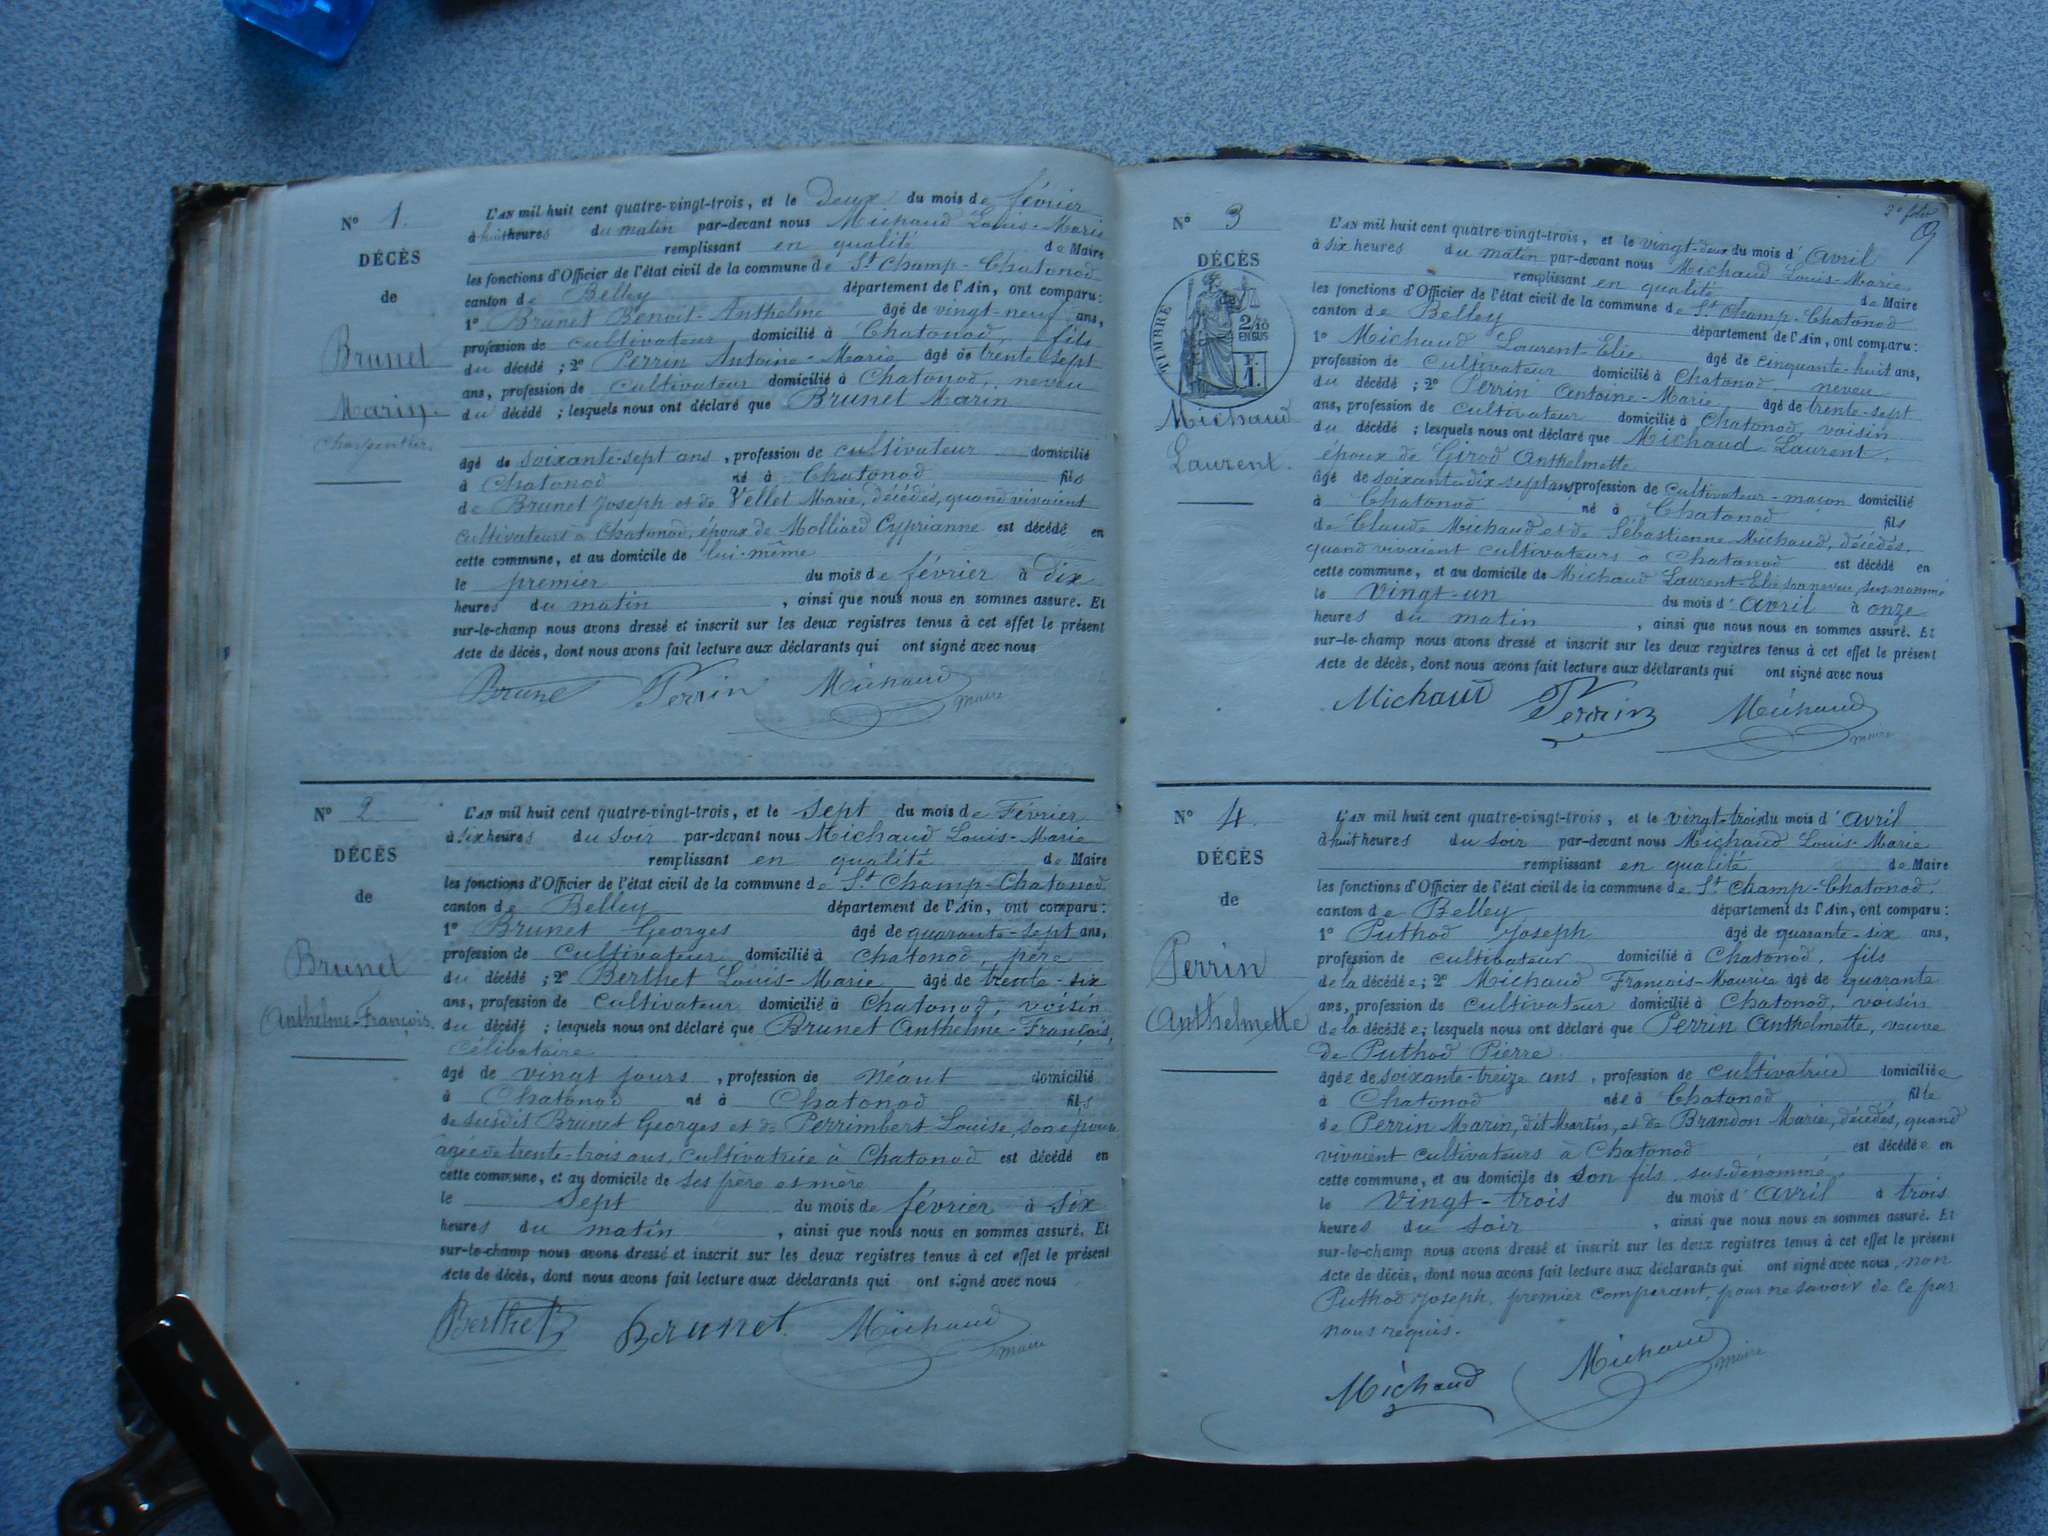 N° 1.
DÉCÈS
de
Brunet
Marin
Charpentier
L'AN mil huit cent quatre-vingt-trois, et le Deux du mois de février
à huit heures du matin par-devant nous Michaud Louis-Marie
remplissant en qualité de Maire
les fonctions d'Officier de l'état civil de la commune de St Champ-Chatonod
canton de Belley département de l'Ain, ont comparu:
1° Brunet Benoit-Anthelme âgé de vingt-neuf ans,
profession de cultivateur domicilié à Chatonod, fils
du décédé; 2° Perrin Antoine-Marie âgé de trente-sept
ans, profession de cultivateur domicilié à Chatonod, neveu
du décédé; lesquels nous ont déclaré que Brunet Marin
âgé de soixante-sept ans, profession de cultivateur domicilié
à Chatonod né à Chatonod fils
de Brunet Joseph et de Vellet Marie, décédés, quand vivaient
cultivateurs à Chatonod, époux de Molliard Cyprianne est décédé en
cette commune, et au domicile de lui-même
le premier du mois de février à dix
heures du matin, ainsi que nous nous en sommes assuré. Et
sur-le-champ nous avons dressé et inscrit sur les deux registres tenus à cet effet le présent
Acte de décès, dont nous avons fait lecture aux déclarants qui ont signé avec nous
Brunet Perrin Michaud maire
N° 2
DÉCÈS
de
Brunet
Anthelme-François
L'AN mil huit cent quatre-vingt-trois, et le sept du mois de Février
à six heures du soir par-devant nous Michaud Louis-Marie
remplissant en qualité de Maire
les fonctions d'Officier de l'état civil de la commune de St Champ-Chatonod
canton de Belley département de l'Ain, ont comparu:
1° Brunet Georges âgé de quarante-sept ans,
profession de cultivateur domicilié à Chatonod, père
du décédé; 2° Berthet Louis-Marie âgé de trente-six
ans, profession de cultivateur domicilié à Chatonod, voisin
du décédé; lesquels nous ont déclaré que Brunet Anthelme-François,
célibataire
âgé de vingt jours, profession de Néant domicilié
à Chatonod né à Chatonod fils
de susdit Brunet Georges et de Perrimbert Louise, son épouse,
âgée de trente-trois ans, cultivatrice à Chatonod est décédé en
cette commune, et au domicile de ses père et mère
le sept du mois de février à six
heures du matin, ainsi que nous nous en sommes assuré. Et
sur-le-champ nous avons dressé et inscrit sur les deux registres tenus à cet effet le présent
Acte de décès, dont nous avons fait lecture aux déclarants qui ont signé avec nous
Berthet Brunet Michaud maire
2e folio
N° 3
DÉCÈS
de
TIMBRE
2/10
EN SUS
F.
1.
Michaud
Laurent.
L'AN mil huit cent quatre-vingt-trois, et le vingt-deux du mois d'avril
à six heures du matin par-devant nous Michaud Louis-Marie
remplissant en qualité de Maire
les fonctions d'Officier de l'état civil de la commune de St Champ-Chatonod
canton de Belley département de l'Ain, ont comparu:
1° Michaud Laurent-Elie âgé de cinquante-huit ans,
profession de cultivateur domicilié à Chatonod neveu
du décédé; 2° Perrin Antoine-Marie âgé de trente-sept
ans, profession de cultivateur domicilié à Chatonod, voisin
du décédé; lesquels nous ont déclaré que Michaud Laurent,
époux de Girod Anthelmette
âgé de soixante-dix-sept ans, profession de cultivateur-maçon domicilié
à Chatonod né à Chatonod fils
de Claude Michaud et de Sébastienne Michaud, décédés,
quand vivaient cultivateurs à Chatonod est décédé en
cette commune, et au domicile de Michaud Laurent-Elie son neveu sus-nommé
le vingt-un du mois d'avril à onze
heures du matin, ainsi que nous nous en sommes assuré. Et
sur-le-champ nous avons dressé et inscrit sur les deux registres tenus à cet effet le présent
Acte de décès, dont nous avons fait lecture aux déclarants qui ont signé avec nous
Michaud Perrin Michaud maire
N° 4
DÉCÈS
de
Perrin
Anthelmette
L'AN mil huit cent quatre-vingt-trois, et le vingt-trois du mois d'avril
à huit heures du soir par-devant nous Michaud Louis-Marie
remplissant en qualité de Maire
les fonctions d'Officier de l'état civil de la commune de St Champ-Chatonod.
canton de Belley département de l'Ain, ont comparu:
1° Puthod Joseph âgé de quarante-six ans,
profession de cultivateur domicilié à Chatonod, fils
de la décédée; 2° Michaud François-Maurice âgé de quarante
ans, profession de cultivateur domicilié à Chatonod, voisin
de la décédée; lesquels nous ont déclaré que Perrin Anthelmette, veuve
de Puthod Pierre
âgée de soixante-treize ans, profession de cultivatrice domiciliée
à Chatonod née à Chatonod fille
de Perrin Marin, dit Martin, et de Brandon Marie, décédés, quand
vivaient cultivateurs à Chatonod est décédée en
cette commune, et au domicile de son fils sus-dénommé
le vingt-trois du mois d'avril à trois
heures du soir, ainsi que nous nous en sommes assuré. Et
sur-le-champ nous avons dressé et inscrit sur les deux registres tenus à cet effet le présent
Acte de décès, dont nous avons fait lecture aux déclarants qui ont signé avec nous, non
Puthod Joseph, premier comparant, pour ne savoir de ce par
nous requis.
Michaud Michaud maire